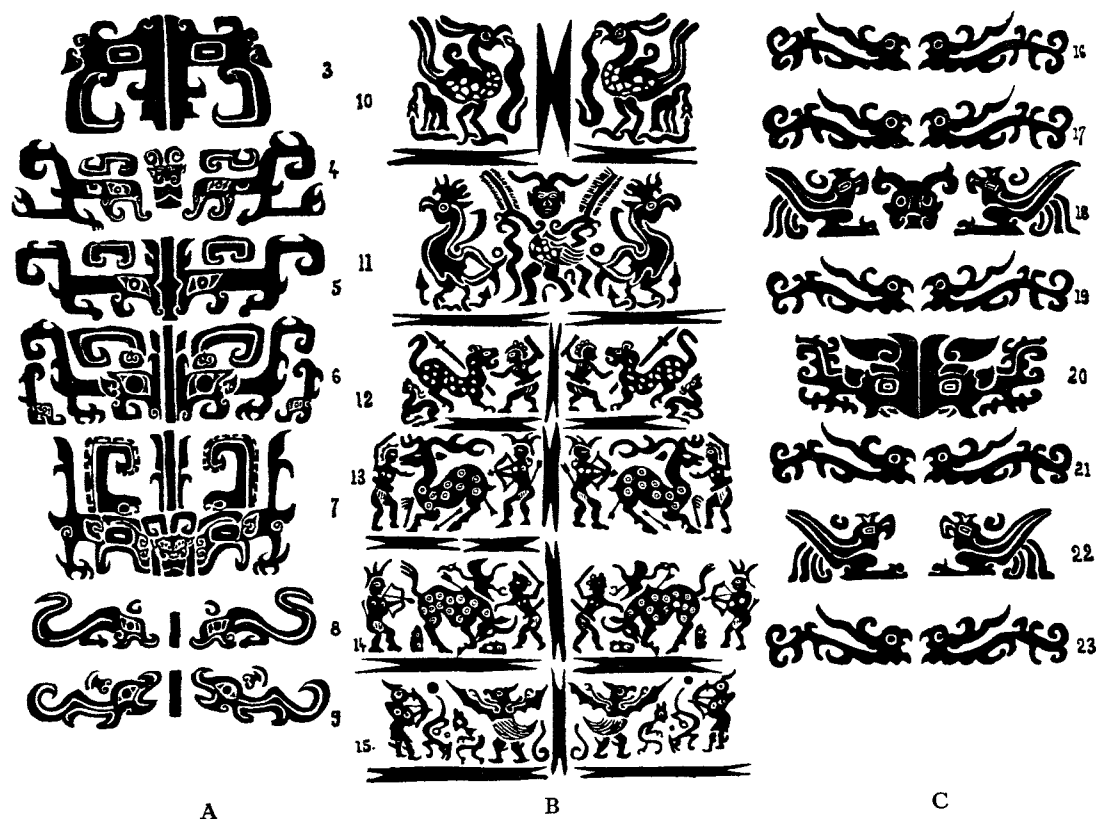 3
4
5
6
7
8
9
A
10
11
12
13
14
15.
B
16
17
18
19
20
21
22
23
C